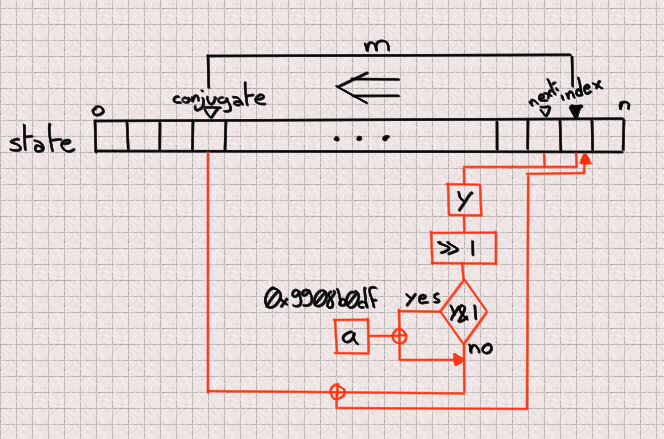 m
conjugate
next index
0
n
state
...
y
>> 1
0x9908b0df
yes
y&1
a
no